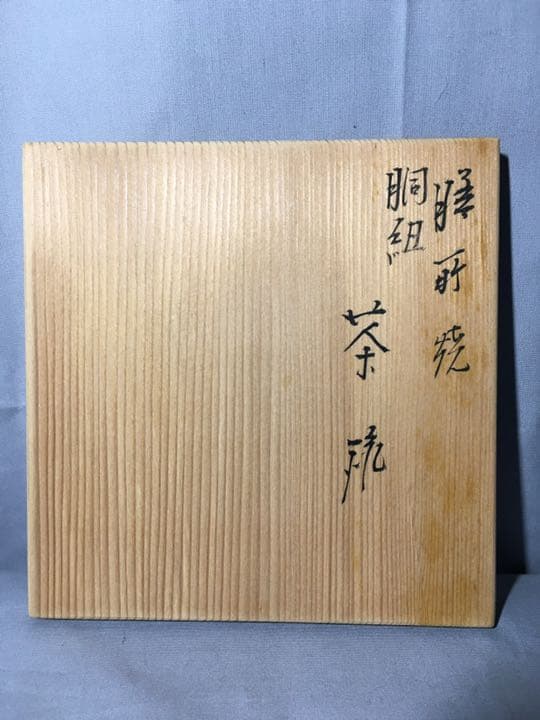 膳所焼
胴紐
茶碗